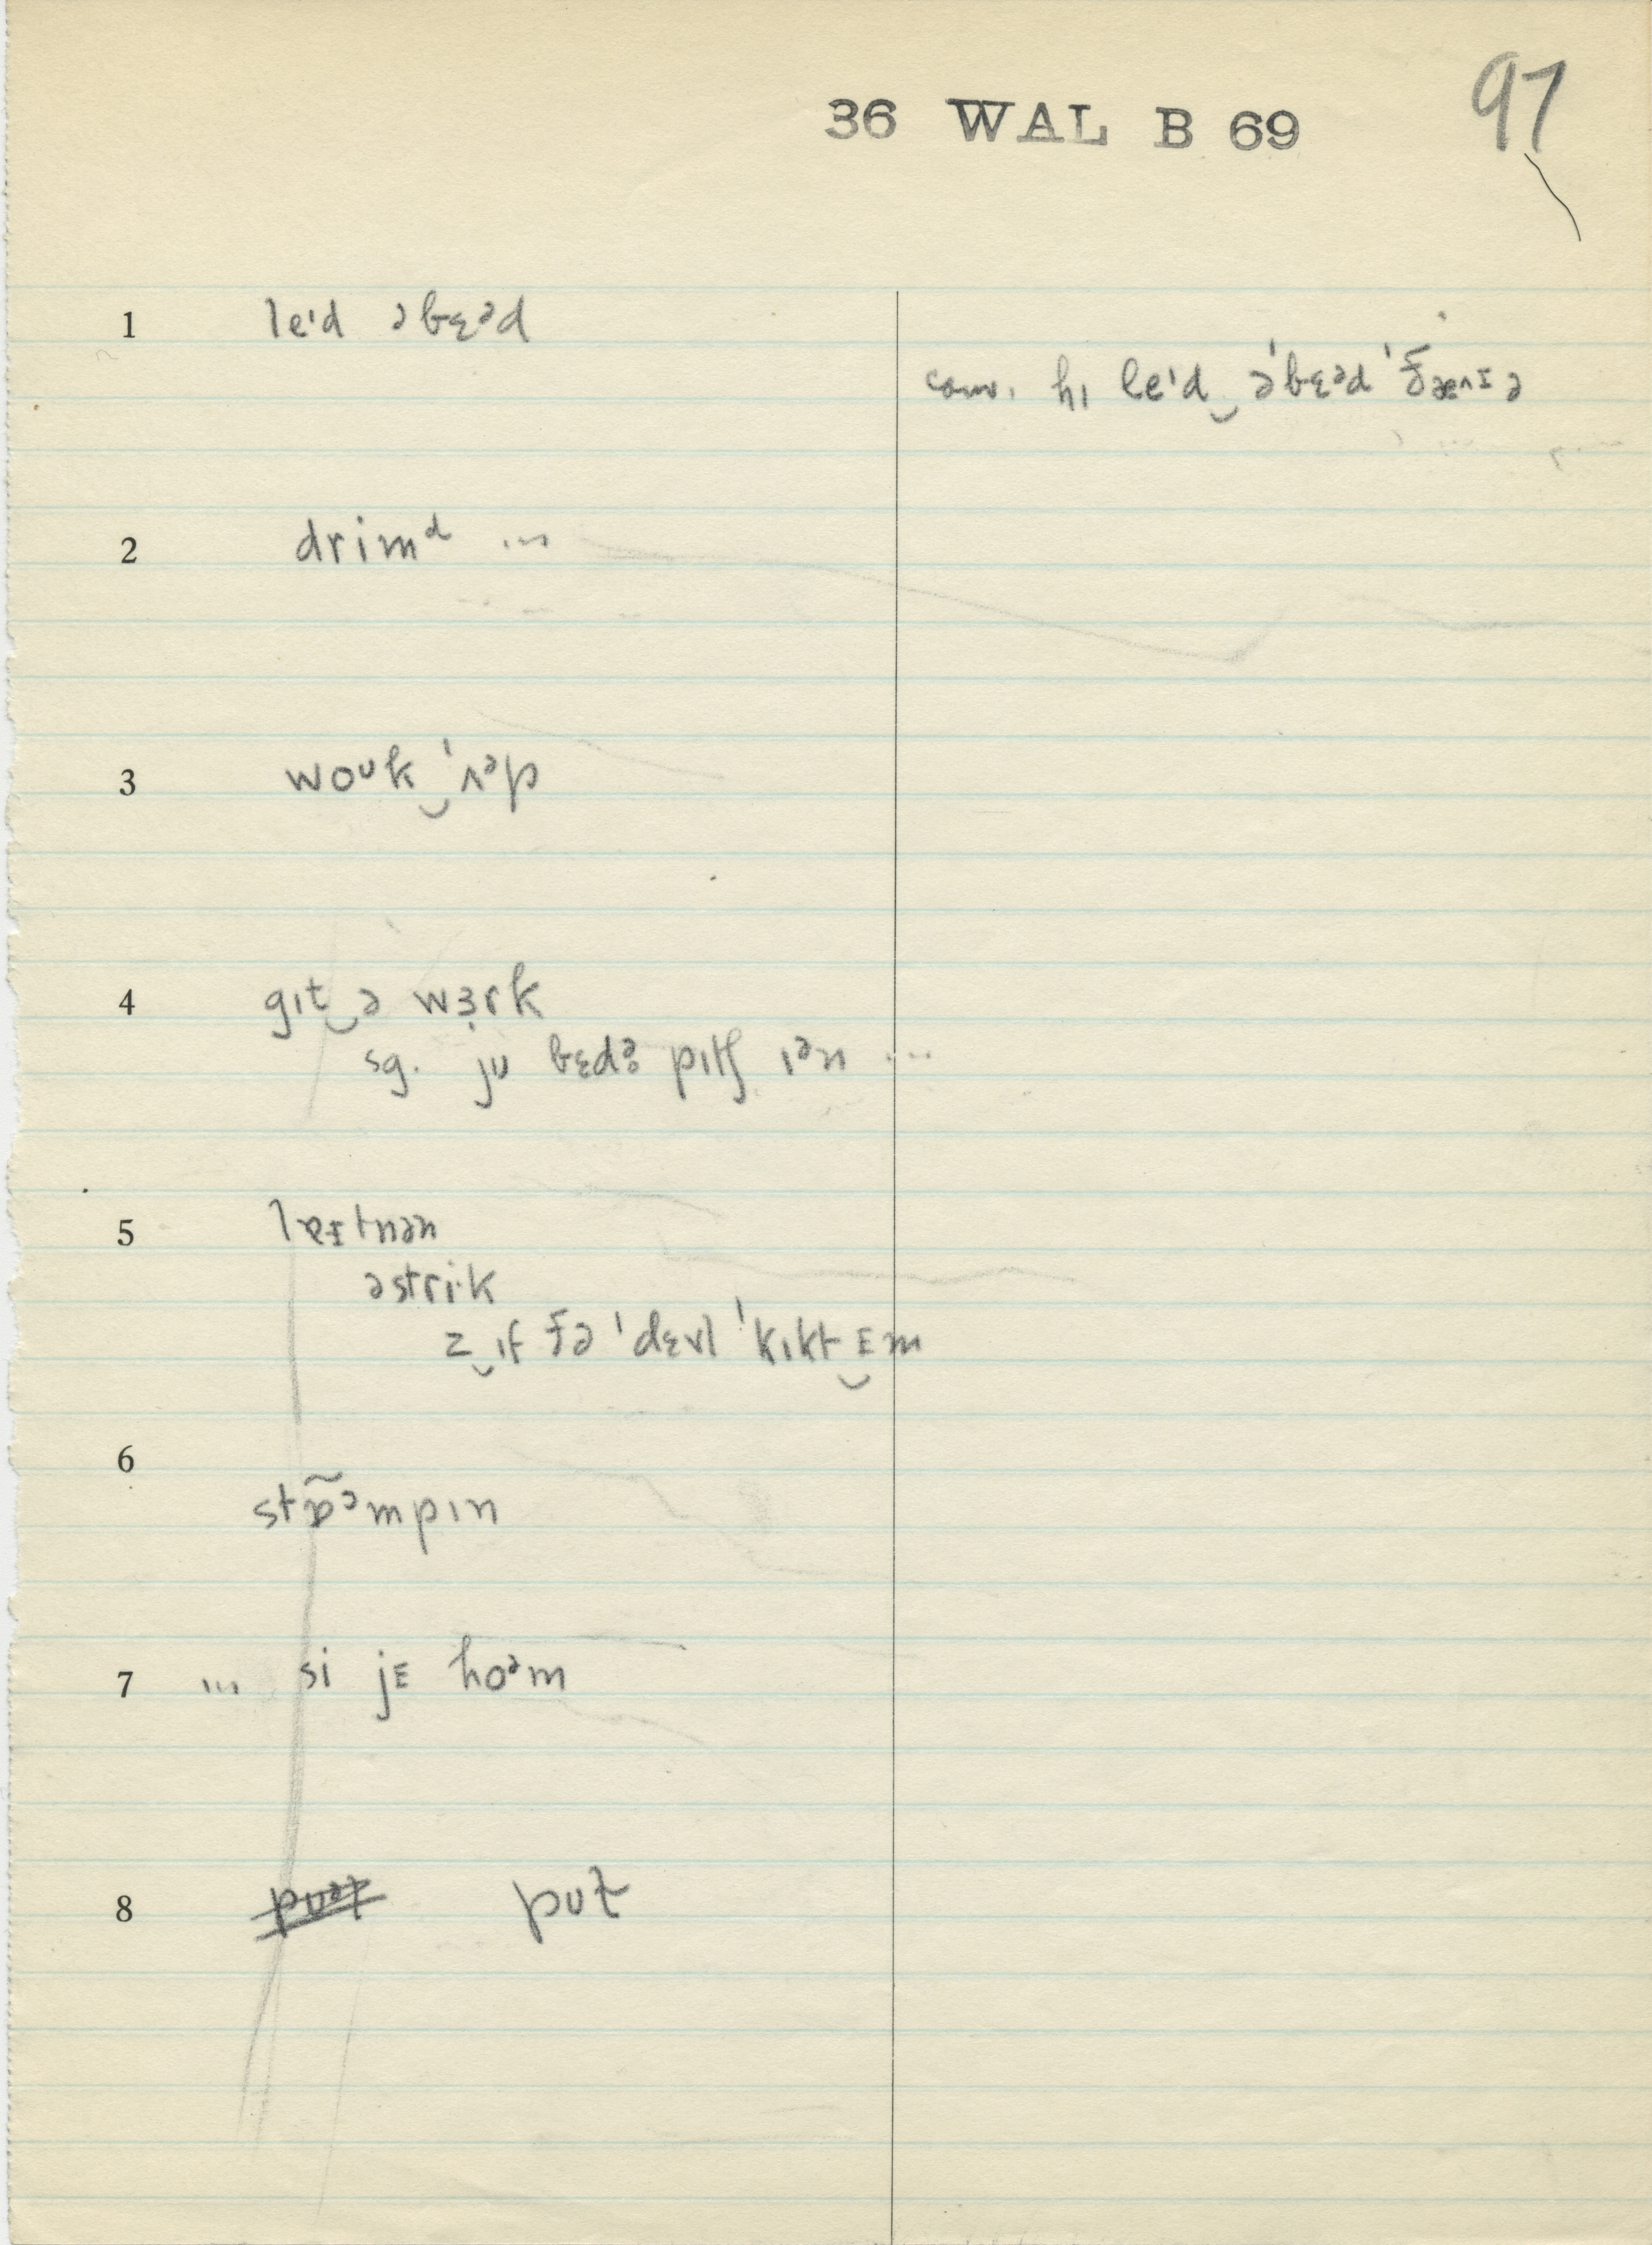 36 WAL B 69
97
1 leᶦd əbɛᵊd
conv. hɪ leᶦd‿əˈbɛᵊd ˈðæʌᵻə
2 drimᵈ ...
3 woᶷk‿ˈʌᵊp
4 gɪt‿ə wɜ̣rk
sg. jᴜ bɛdə̥ pɪtʃ ɪᵊn ...
5 lɐᵻtnən
əstri·k
z‿ɪf ðə ˈdɛvl ˈkɪkt‿ᴇm
6 stɒ̃ᵊmpɪn
7 ... si jᴇ hoᵊm
8 pᴜt̬